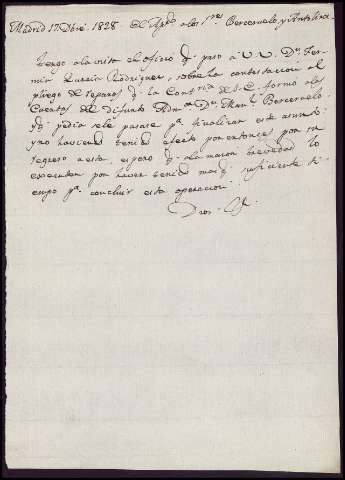 Madrid 17 Dbre. 1828. El Apdo. a los Sres. Berceruelo, y Antolinez
Tengo a la vista el oficio q. paso a V.V. Dn. Fer-
min Rodriguez, sobre la contestacion al
pliego de reparos q. la Contria. de S.E. formó a las
Cuentas del difunto Admor. Dn. Manl. Berceruelo
y q. pedia se le pasara pa. finalizar este asunto
y no haviendo tenido efecto por entonces por su
regreso a esta, espero q. a la maior brevedad lo
executen por haver tenido mas q. suficiente ti-
empo pa. concluir esta operacion.
Dios &.